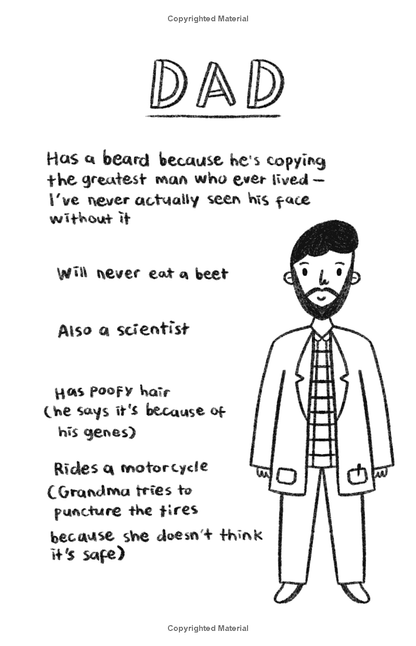 Copyrighted Material
DAD
Has a beard because he's copying
the greatest man who ever lived –
I've never actually seen his face
without it
Will never eat a beet
Also a scientist
Has POOFY hair
(he says it's because of
his genes)
Rides a motorcycle
(Grandma tries to
puncture the tires
because she doesn't think
it's safe)
Copyrighted Material